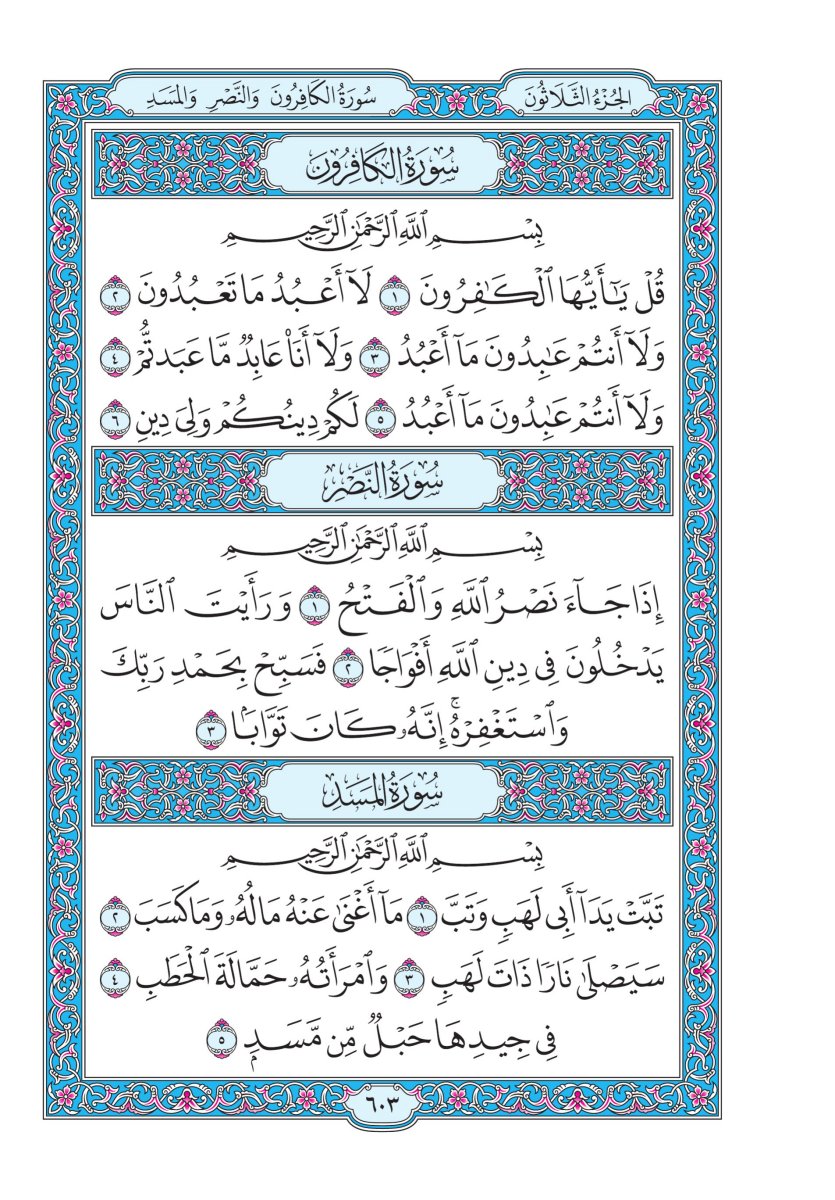 الجُزْءُ الثَّلَاثُونَ
سُورَةُ الكَافِرُونَ وَالنَّصْرِ وَالمَسَدِ
سُورَةُ الكَافِرُونَ
بِسْمِ ٱللَّهِ ٱلرَّحْمَٰنِ ٱلرَّحِيمِ
قُلْ يَٰٓأَيُّهَا ٱلْكَٰفِرُونَ ١ لَآ أَعْبُدُ مَا تَعْبُدُونَ ٢
وَلَآ أَنتُمْ عَٰبِدُونَ مَآ أَعْبُدُ ٣ وَلَآ أَنَا۠ عَابِدٌ مَّا عَبَدتُّمْ ٤
وَلَآ أَنتُمْ عَٰبِدُونَ مَآ أَعْبُدُ ٥ لَكُمْ دِينُكُمْ وَلِيَ دِينِ ٦
سُورَةُ النَّصْرِ
بِسْمِ ٱللَّهِ ٱلرَّحْمَٰنِ ٱلرَّحِيمِ
إِذَا جَآءَ نَصْرُ ٱللَّهِ وَٱلْفَتْحُ ١ وَرَأَيْتَ ٱلنَّاسَ
يَدْخُلُونَ فِى دِينِ ٱللَّهِ أَفْوَاجًا ٢ فَسَبِّحْ بِحَمْدِ رَبِّكَ
وَٱسْتَغْفِرْهُۚ إِنَّهُۥ كَانَ تَوَّابَۢا ٣
سُورَةُ المَسَدِ
بِسْمِ ٱللَّهِ ٱلرَّحْمَٰنِ ٱلرَّحِيمِ
تَبَّتْ يَدَآ أَبِى لَهَبٍ وَتَبَّ ١ مَآ أَغْنَىٰ عَنْهُ مَالُهُۥ وَمَا كَسَبَ ٢
سَيَصْلَىٰ نَارًا ذَاتَ لَهَبٍ ٣ وَٱمْرَأَتُهُۥ حَمَّالَةَ ٱلْحَطَبِ ٤
فِى جِيدِهَا حَبْلٌ مِّن مَّسَدٍۭ ٥
٦٠٣